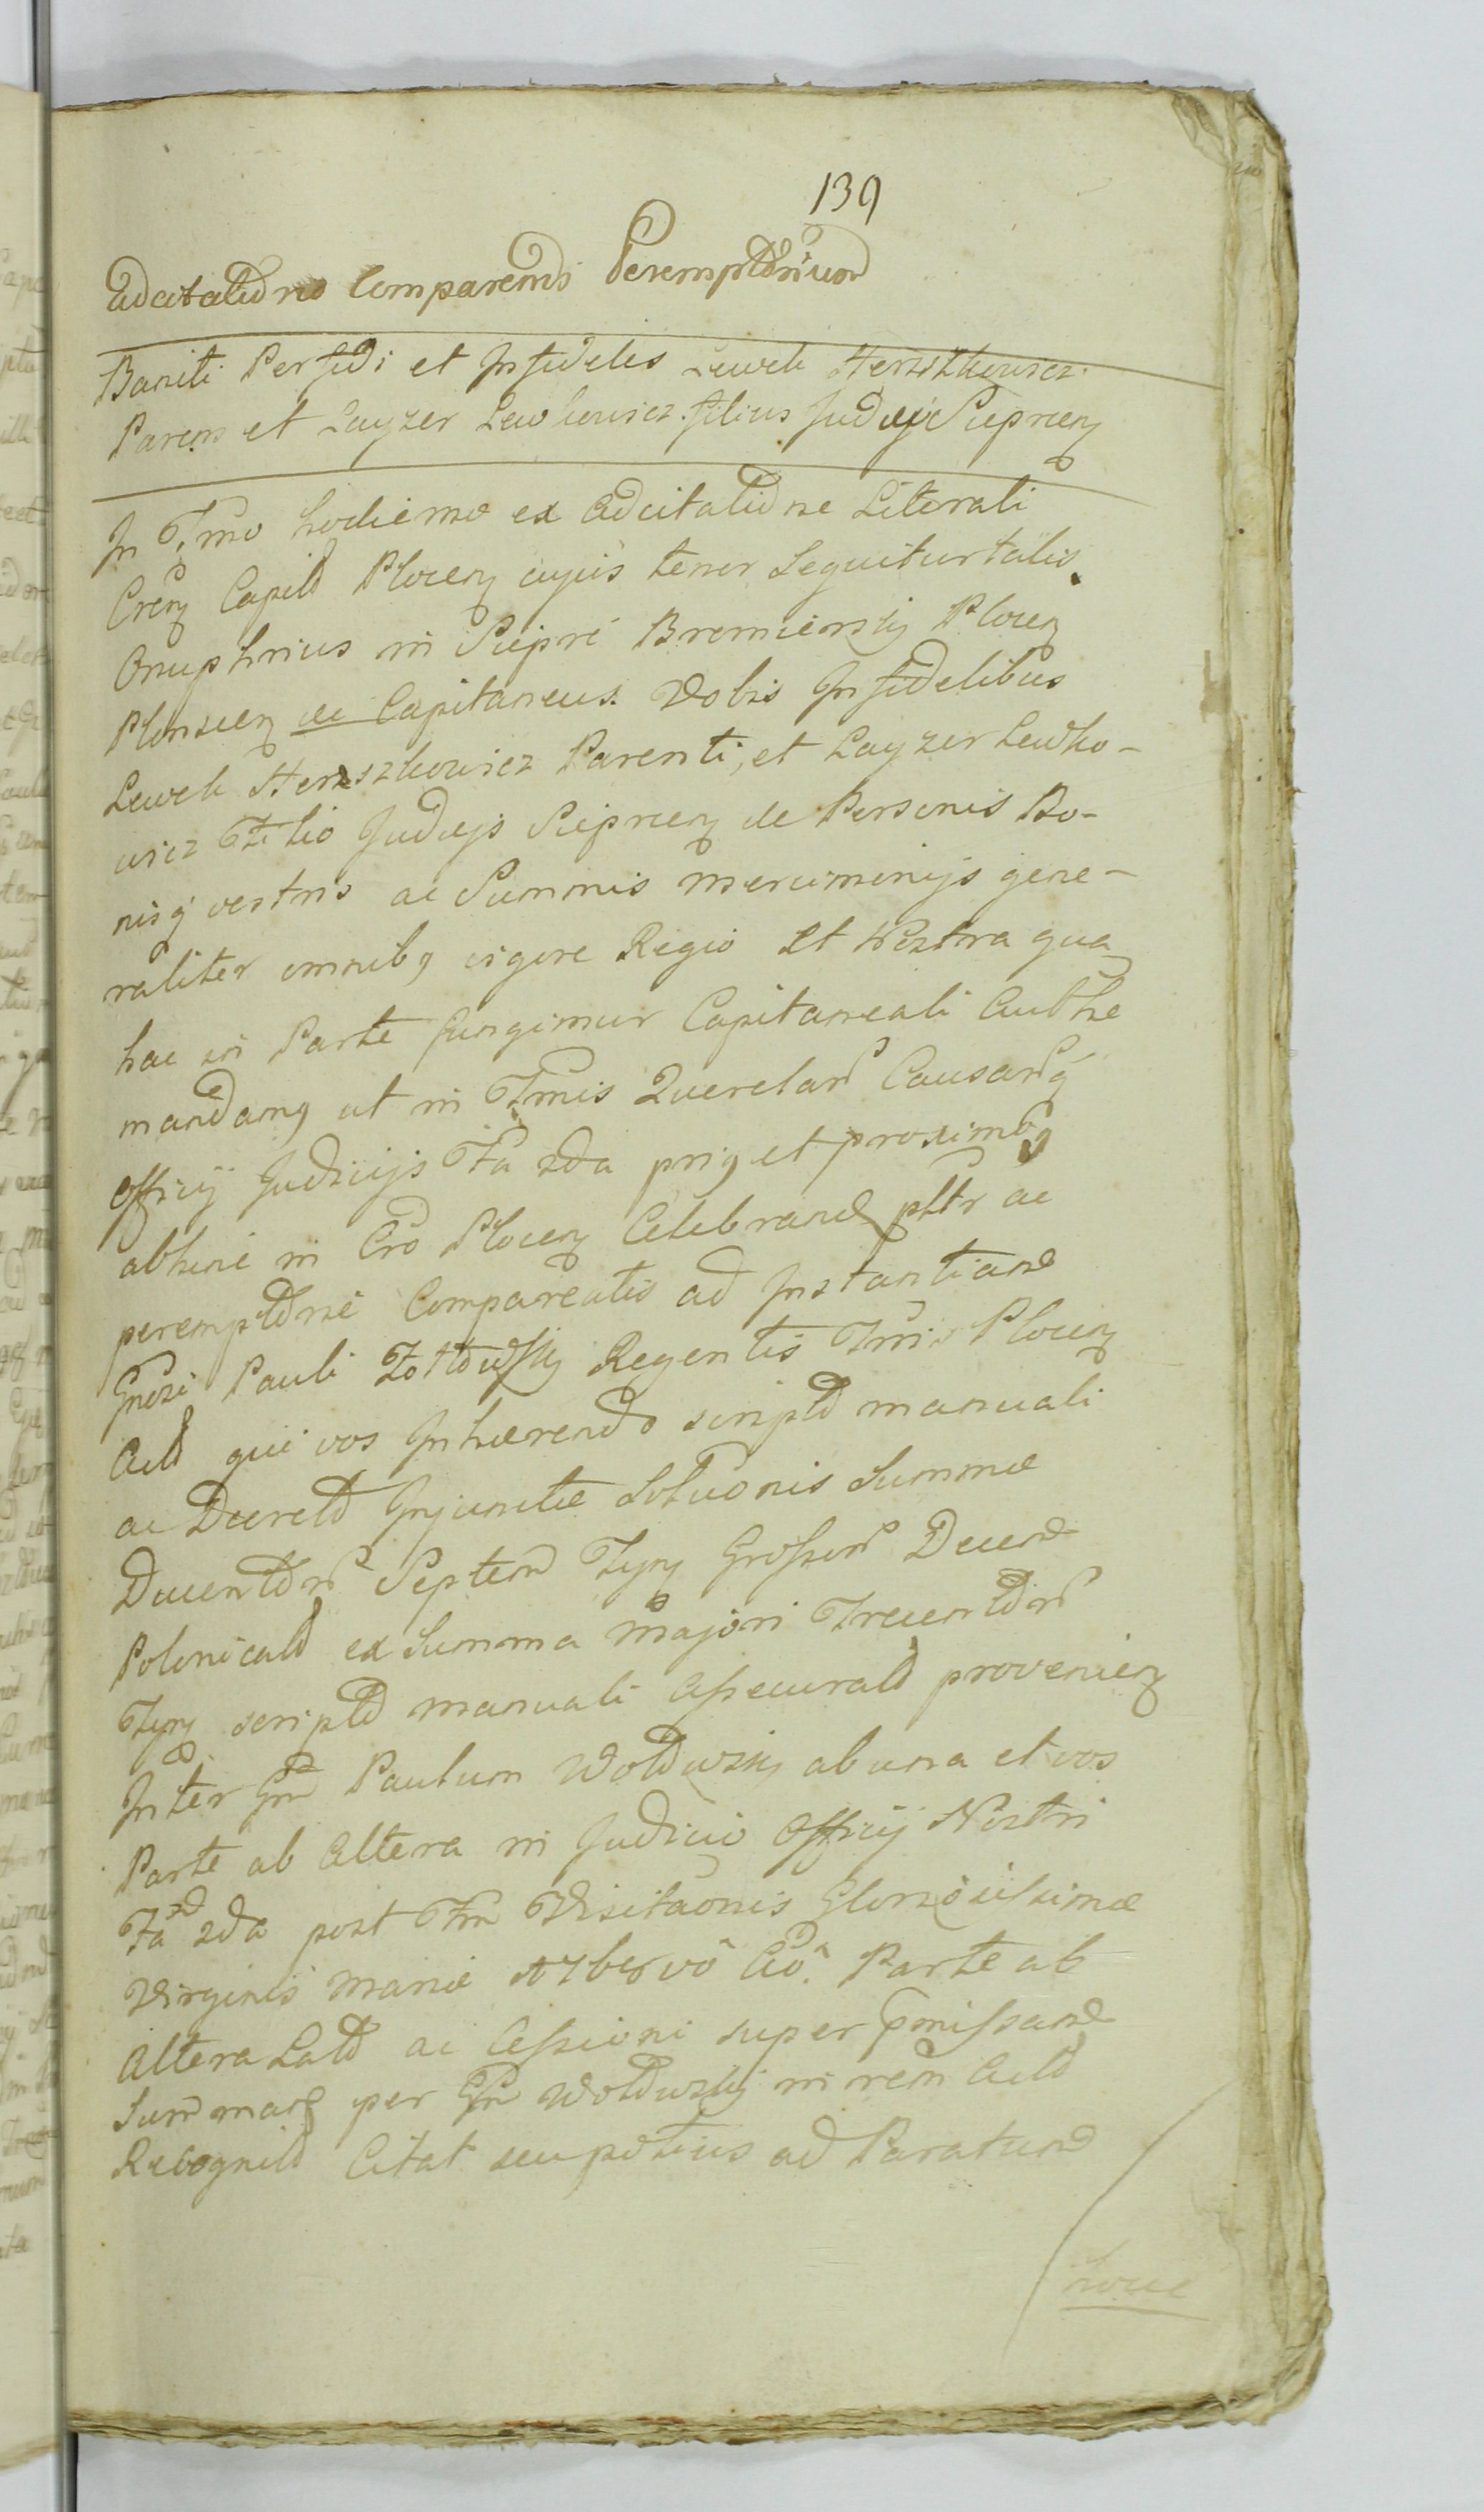 139
Adcitatiōne Comparendi Peremptōrium
Baniti Perfidi et Infideles Lewek Herszkowicz
Parens et Layzer Lewkowicz filius Judæi Sieprcen
In Tmo hodierno ex Adcitatiōne Literali
Cren Capitl Plocen cujus tenor Sequitur talis.
Onuphrius in Sieprc Bromiersky Plocen
Plonscen &c Capitaneus. Vobis Infidelibus
Lewek Herszkowicz Parenti, et Layzer Lewko-
wicz Filio Judæis Sieprcen de Personis Bo-
nisq vestris ac Summis mercimonijs gene-
raliter omnibq vigore Regio et Nostra qua
hac in Parte fungimur Capitaneali Autthe
mandamq ut in Tmis Querelar Causarq
Officij Judicijs Fa 2da prig et proximæ
abhinc in Cro Plocen Celebrand pltr ac
peremptōrie Compareatis ad Instantiam
Gnosi Pauli Zołtowsky Regentis Tmis Plocen
Actō qui vos Inhærendo scriptō manuali
ac Decretō Injunctæ Solvonis Summæ
Ducentōr Septem Tyn Grossor Decem
Polonicalō ex Summa Majori Trecentōr
Tyn scriptō manuali Assecuratō provenien
Inter Gm Paulum Woldwsky ab una et vos
Parte ab Altera in Judicio Officij Nostri
Fa 2da post Fm Visitaonis Gloriosissimæ
Virginis Mariæ A 7bervō Ao. Parte ab
Altera Latō ac Cessioni super pmissam
Summam per Gm Woldwsky in rem Actō
Recognitō Citat seu potius ad Paratum